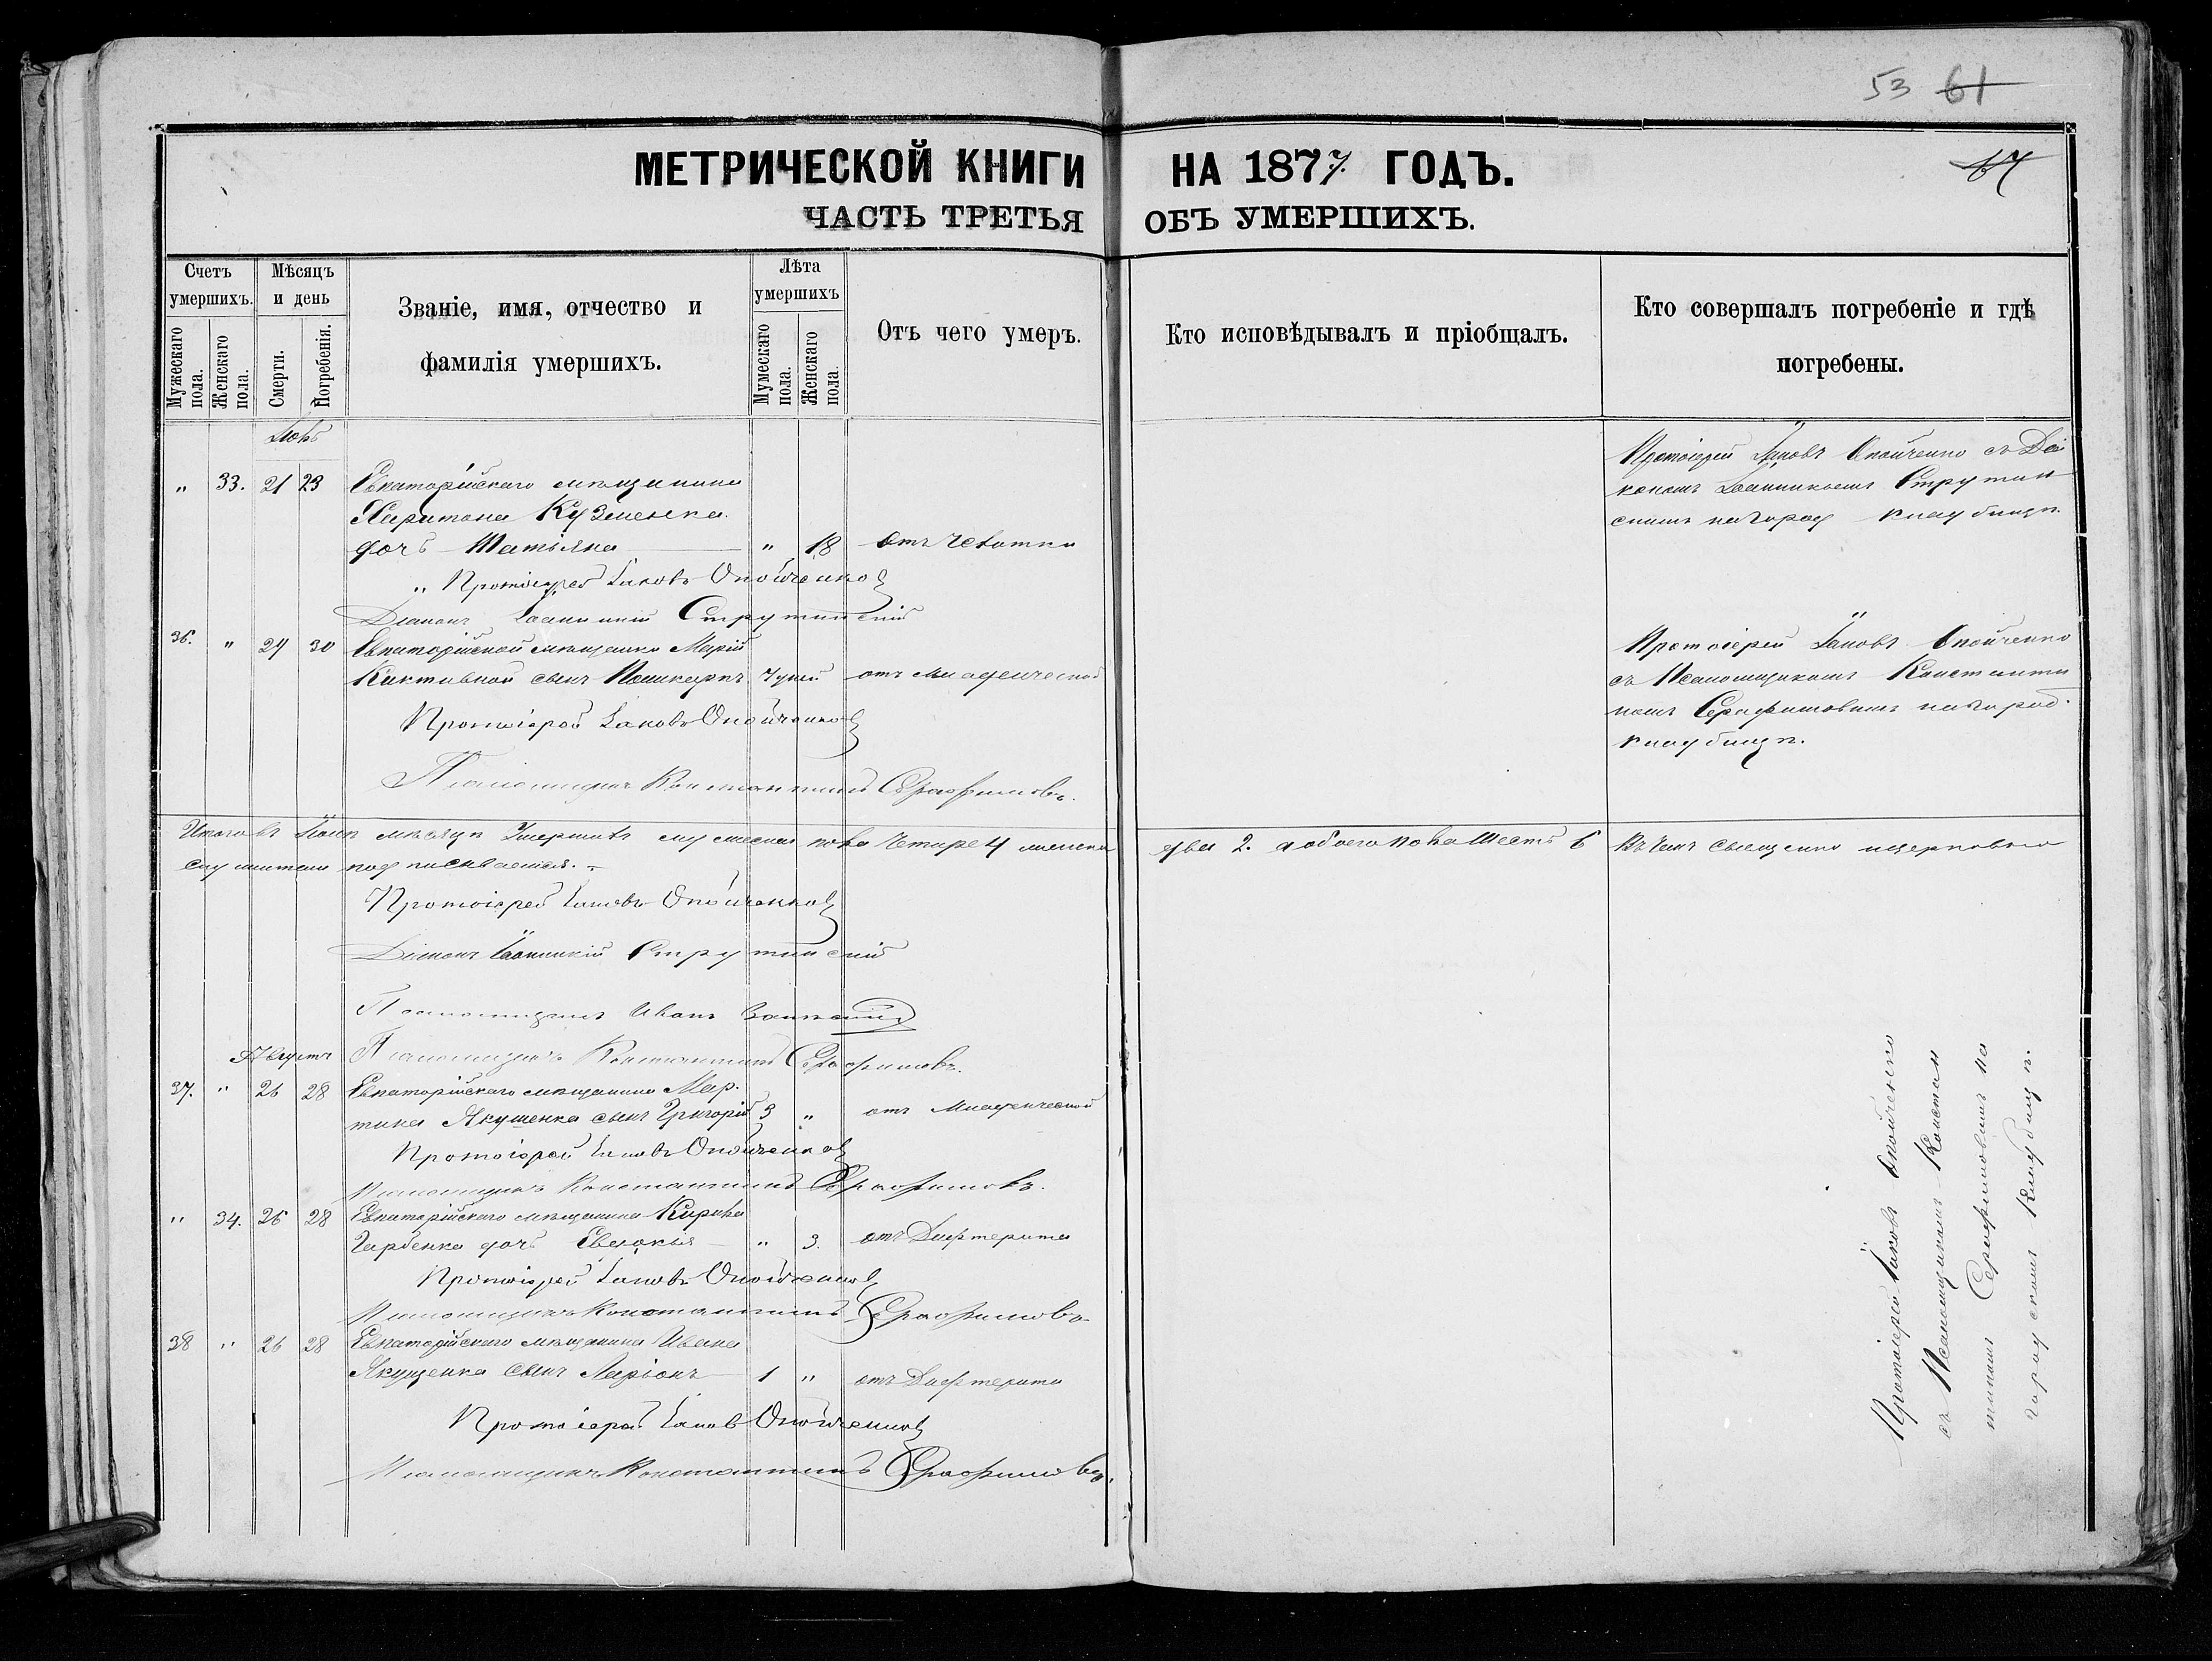 53 61
МЕТРИЧЕСКОЙ КНИГИ НА 1877 ГОДЪ.
67
ЧАСТЬ ТРЕТЬЯ ОБЪ УМЕРШИХЪ.
Счетъ умершихъ.
Мужескаго пола.
Женскаго пола.
Мѣсяцъ и день
Смерти.
Погребенія.
Званіе, имя, отчество и
фамилія умершихъ.
Лѣта умершихъ
Мумескаго пола.
Женскаго пола.
Отъ чего умеръ.
Кто исповѣдывалъ и пріобщалъ.
Кто совершалъ погребеніе и гдѣ
погребены.
" 33. 21 23 Евпаторійскаго мѣщанина
Харитона Кузменка
дочь Татьяна " 18 отъ Чехотки
Протоіерей Іаковъ Опойченко съ Діа
кономъ Іоанникіемъ Струтин
скимъ на город кладбищѣ.
" Протоіерей Іаковъ Опойченко
Діаконъ Іоанникій Струтинскій
36. " 29 30 Евпаторійской мѣщанки Маріи
сынъ Поликарпъ 7 дней отъ Младенческой
Протоіерей Іаковъ Опойченко
съ Псаломщикомъ Константи
номъ Серафимовымъ на город.
кладбищѣ.
Протоіерей Іаковъ Опойченко
Псаломщикъ Константинъ Серафимовъ.
Итого въ Іюлѣ мѣсяцѣ Умершихъ мужеска пола Четыре 4 женска два 2. а обоего пола Шесть 6 Въ чемъ Священно церковно
служители подписываемся.
Протоіерей Іаковъ Опойченко
Діаконъ Іоанникій Струтинскій
Псаломщикъ Иванъ
Псаломщикъ Константинъ Серафимовъ.
Августъ
37. " 26 28 Евпаторійскаго мѣщанина Мар-
тина Якушенка сынъ Григорій 3 " отъ Младенческой
Протоіерей Іаковъ Опойченко
Псаломщикъ Константинъ Серафимовъ.
" 34. 26 28 Евпаторійскаго мѣщанина Кирила
Гарбенка дочь Евдокія " 3. отъ Дифтерита
Протоіерей Іаковъ Опойченко
Псаломщикъ Константинъ Серафимовъ
38 " 26 28 Евпаторійскаго мѣщанина Ивана
Якущенка сынъ Ларіонъ 1 " отъ Дифтерита
Протоіерей Іаковъ Опойченко
Псаломщикъ Константинъ Серафимовъ.
Протоіерей Іаковъ Опойченко
съ Псаломщикомъ Констан
тиномъ Серафимовымъ на
городскомъ Кладбищѣ.